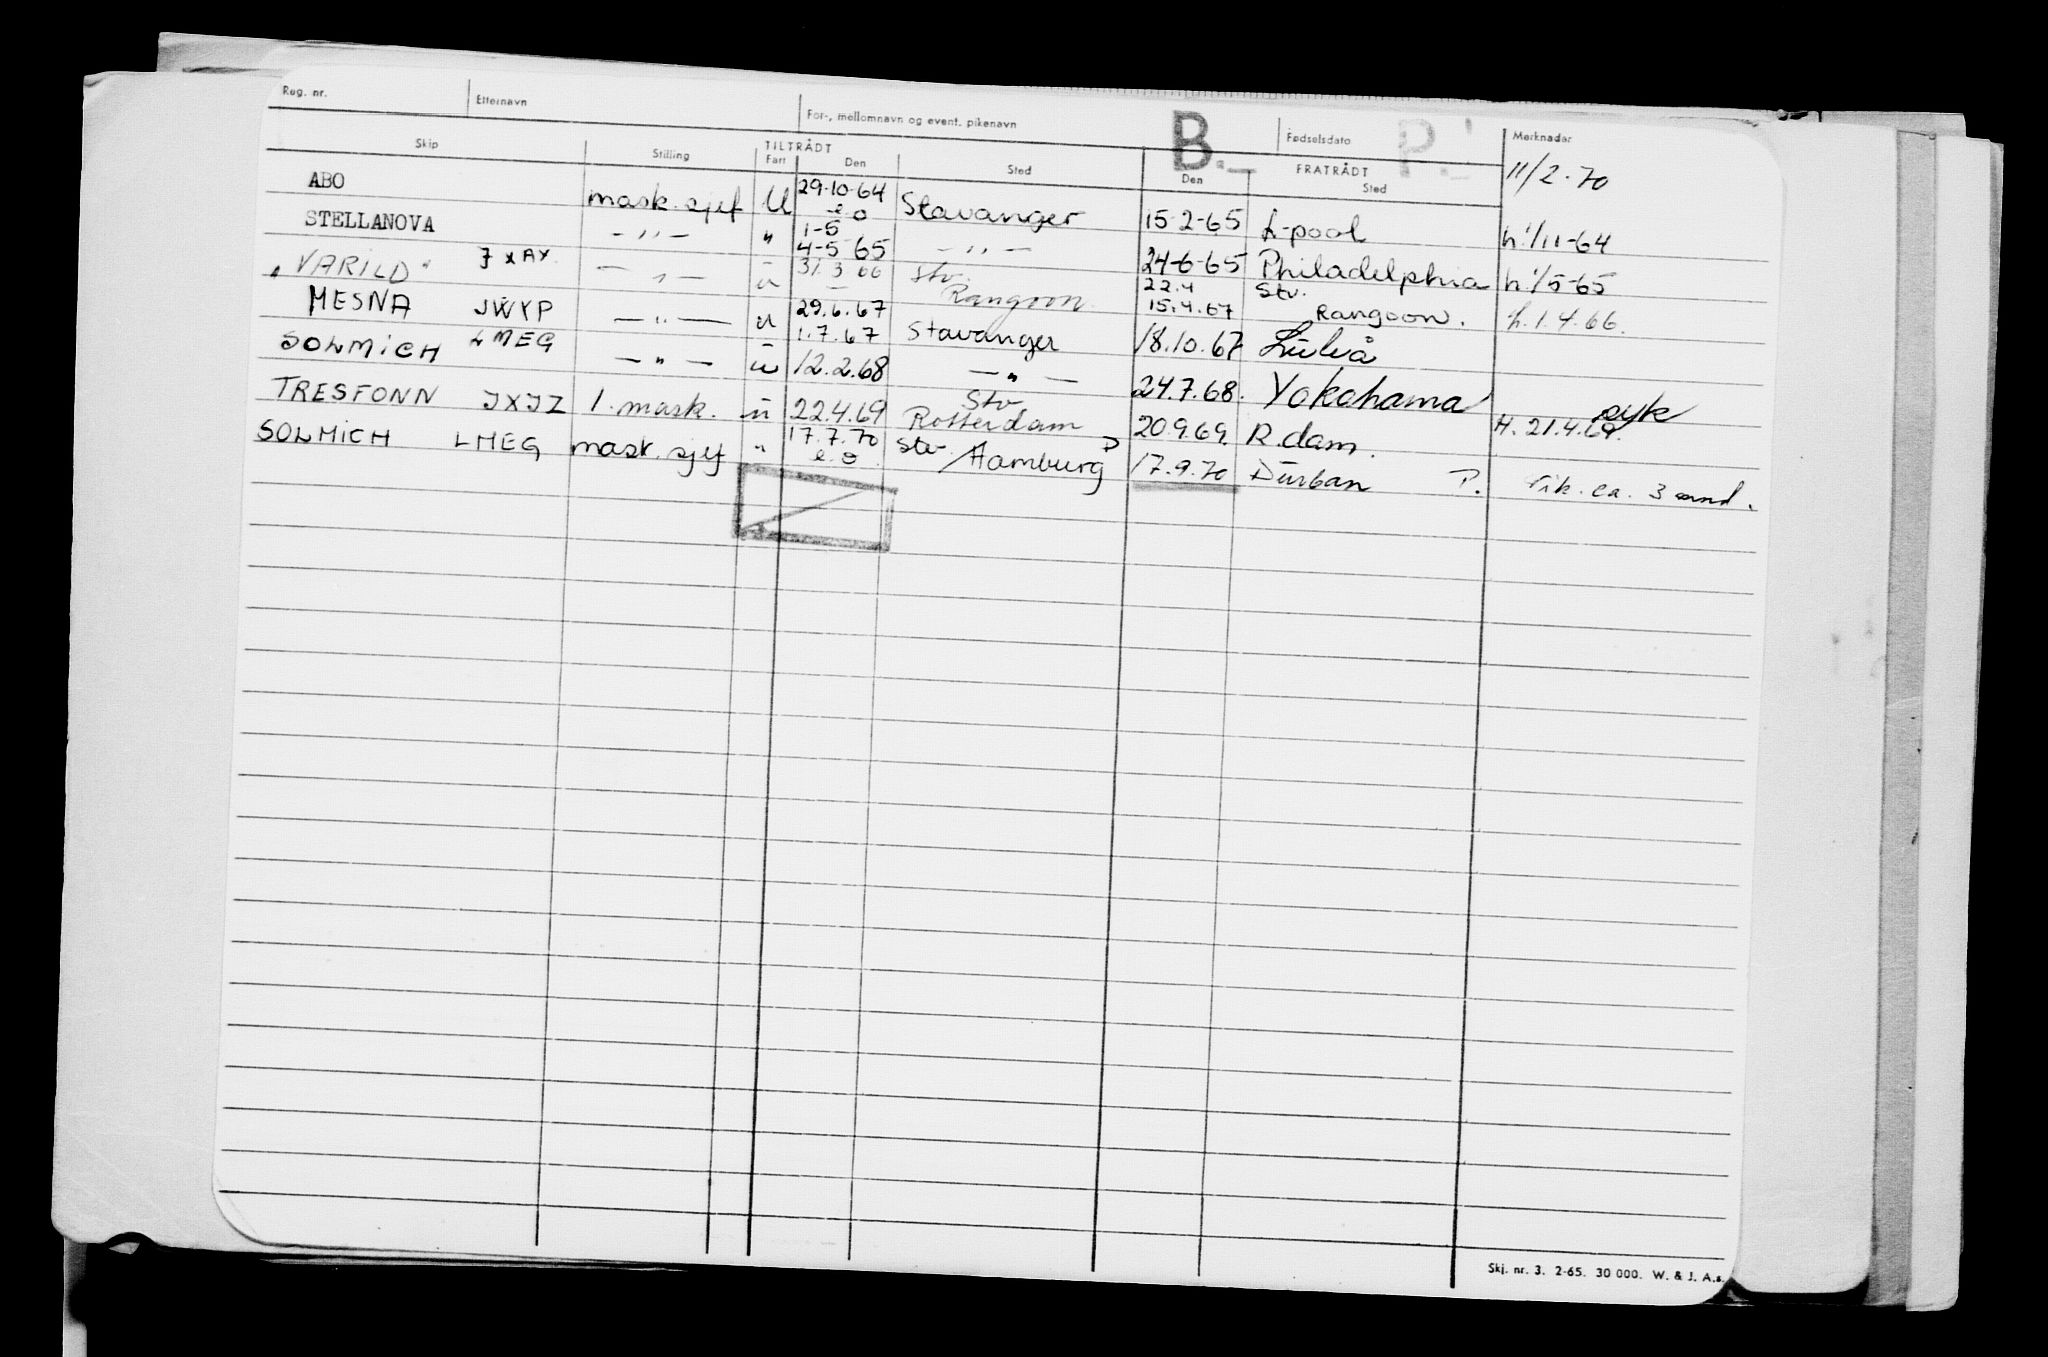 Reg. nr. Etternavn For-, mellomnavn og event. pikenavn B. Fødselsdato P. Merknader
Skip Stilling TILTRÅDT FRATRÅDT 11/2.70
Fart Den Sted Den Sted
ABO mask. sjef U 29-10-64 Stavanger 15-2-65 L-pool h. 1/11-64
e.o
STELLANOVA - " - " 1-5
4-5-65 - " - 24-6-65 Philadelphia h. 1/5-65
"VARILD" JXAX - " - u 31.3.66 Stv. Rangoon. 22.4 Stv.
15.4.67 Rangoon. h. 1.4.66.
MESNA JWYP - " - u 29.6.67
1.7.67 Stavanger 18.10.67 Luleå
SOLMICH LMEG - " - u 12.2.68 - " - 24.7.68. Yokohama syk
TRESFONN JXJZ 1. mask. u 22.4.69 Stv Rotterdam 20.9.69. R.dam. H. 21.4.69.
SOLMICH LMEG mask. sjef " 17.7.70 Stv. Hamburg P 17.9.70 Durban P. Vik. ca. 3 mnd.
e.o.
Skj. nr. 3. 2-65. 30 000. W. & J. A.s.